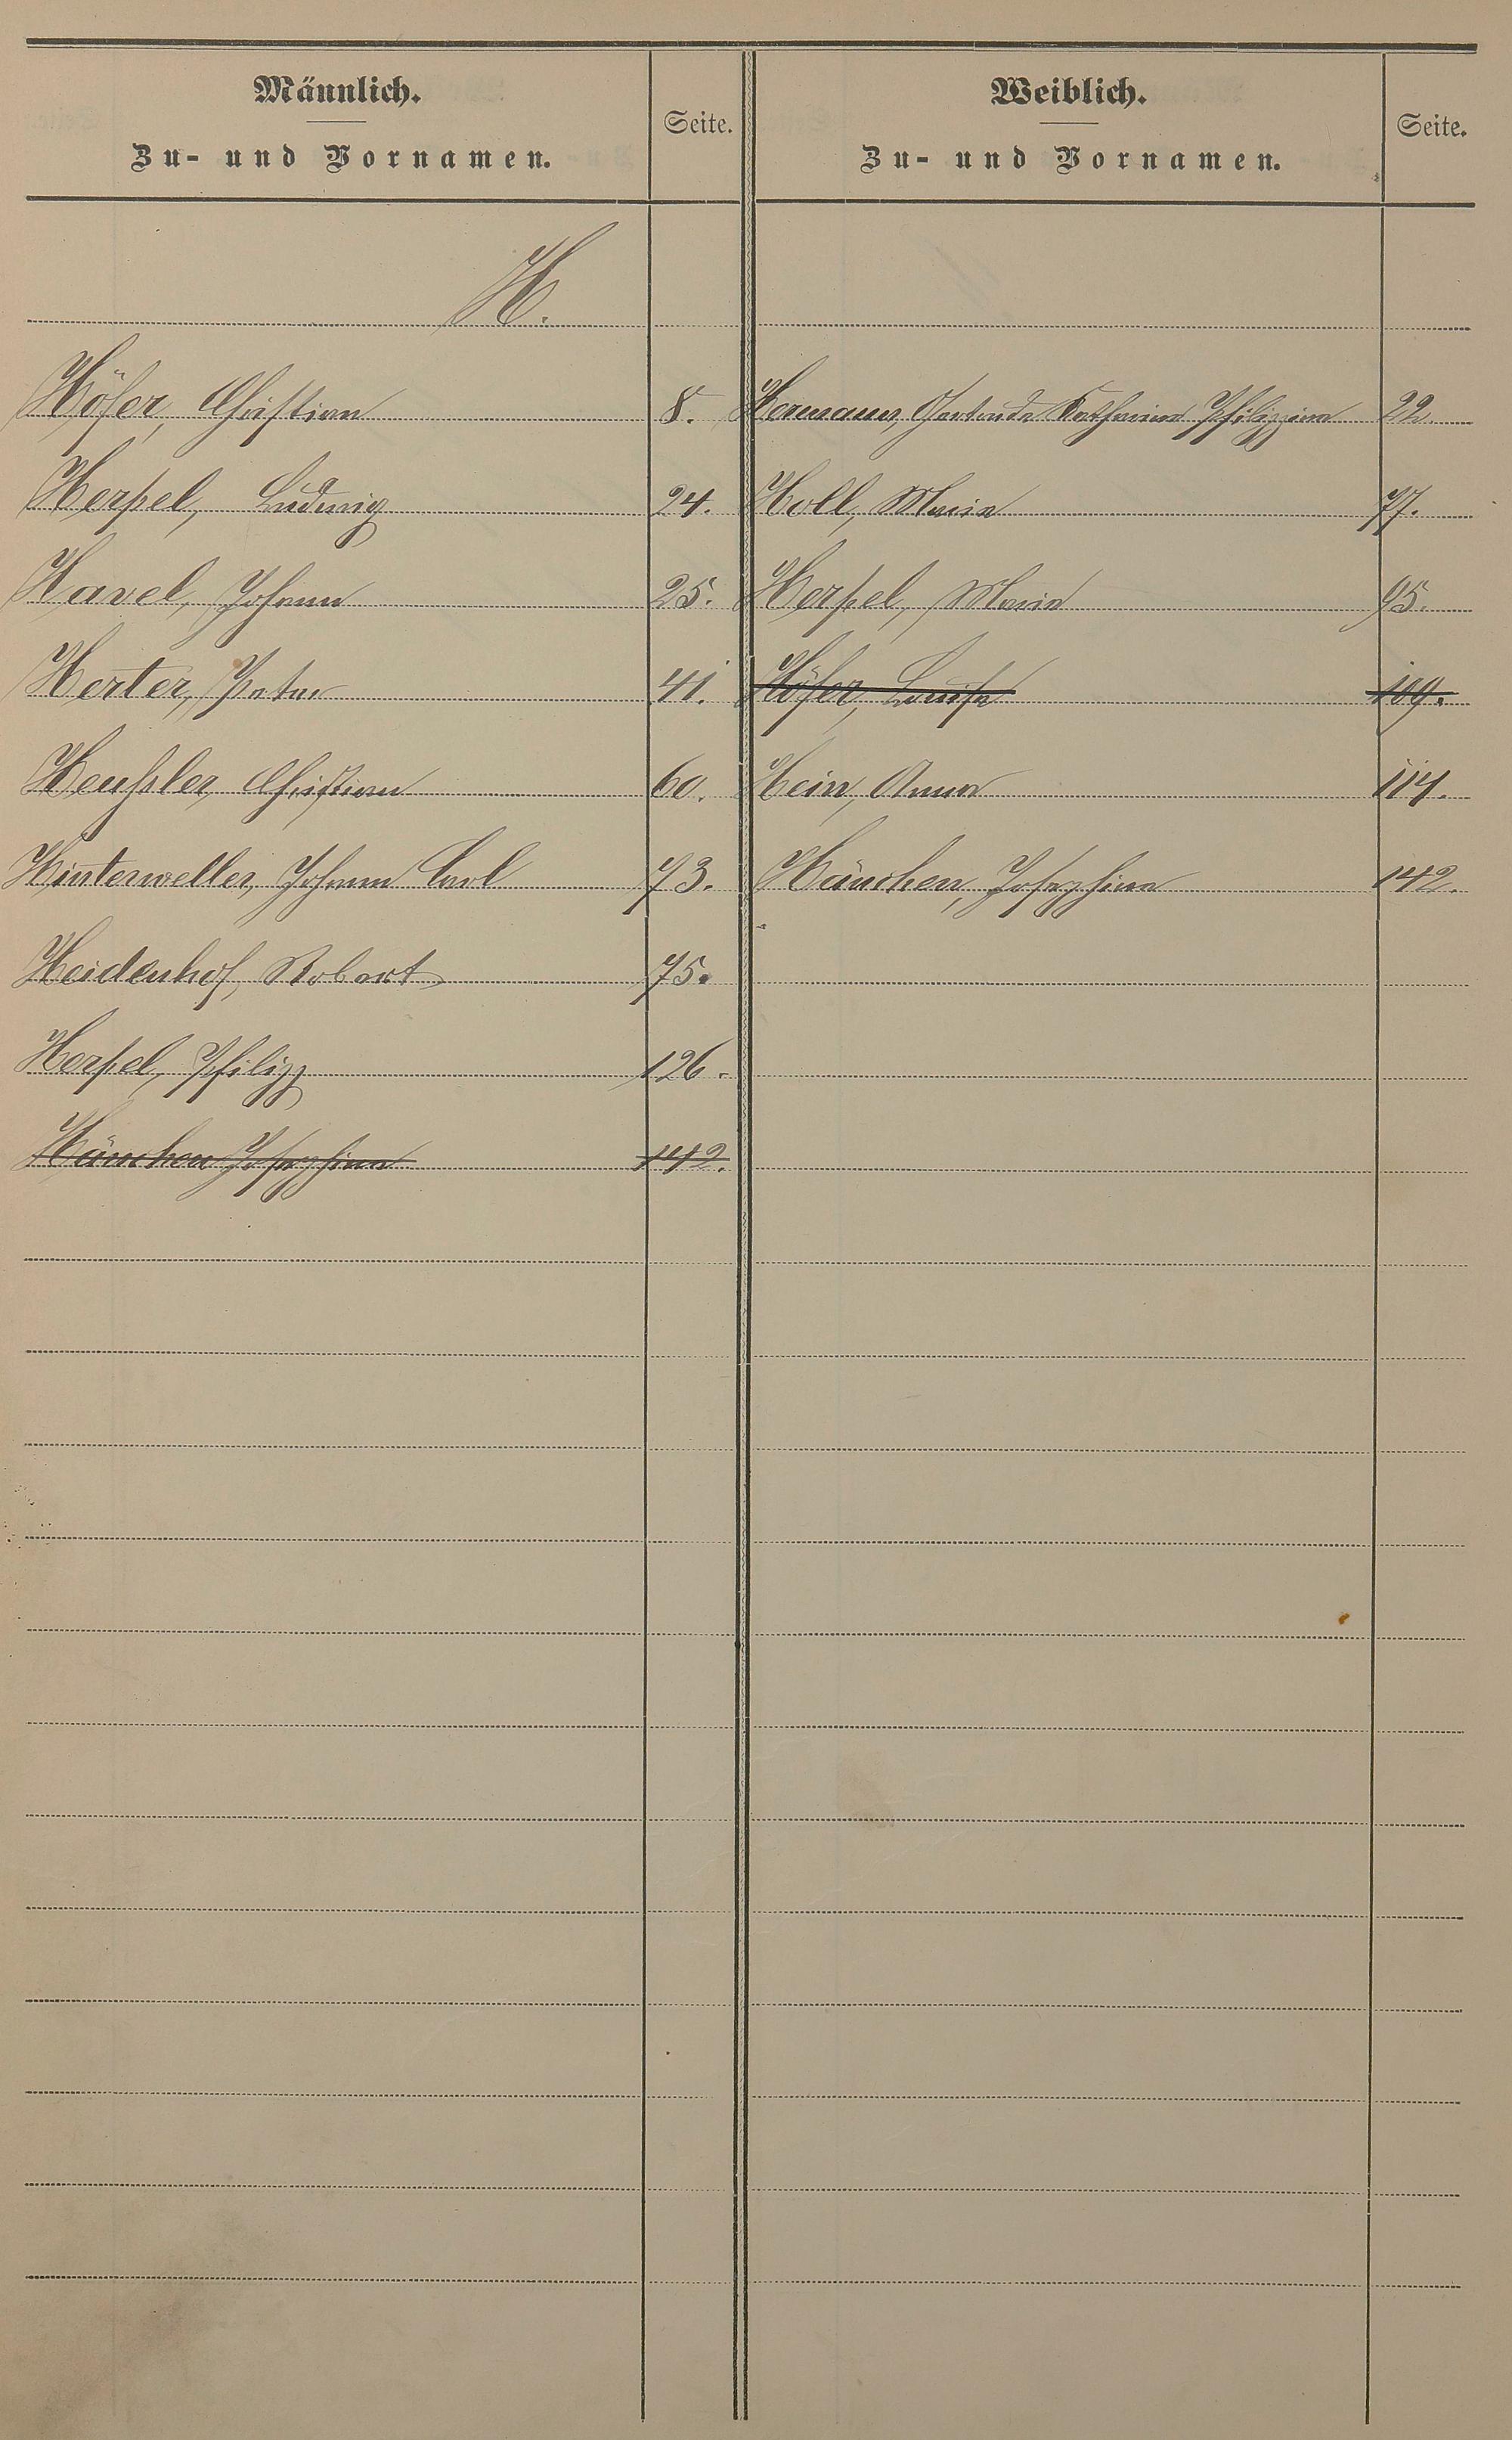 Männlich.
Zu- und Vornamen.
Seite.
Weiblich.
Zu- und Vornamen.
Seite.
H.
Höfer, Christian 8. Hermann, Gertrude Katharina Philippina 22.
Herpel, Ludwig 24. Holl, Maria 77.
Havel, Johann 25. Herpel, Maria 95.
Herter, Peter 41. Höfer, Louise 109.
Heußler, Christian 60. Hein, Anna 114.
Hinterweller, Johann Carl 73. Hänchen, Josephina 142.
Heidenhof, Robert 75.
Herpel, Philipp 126.
Hänchen Josephina 142.